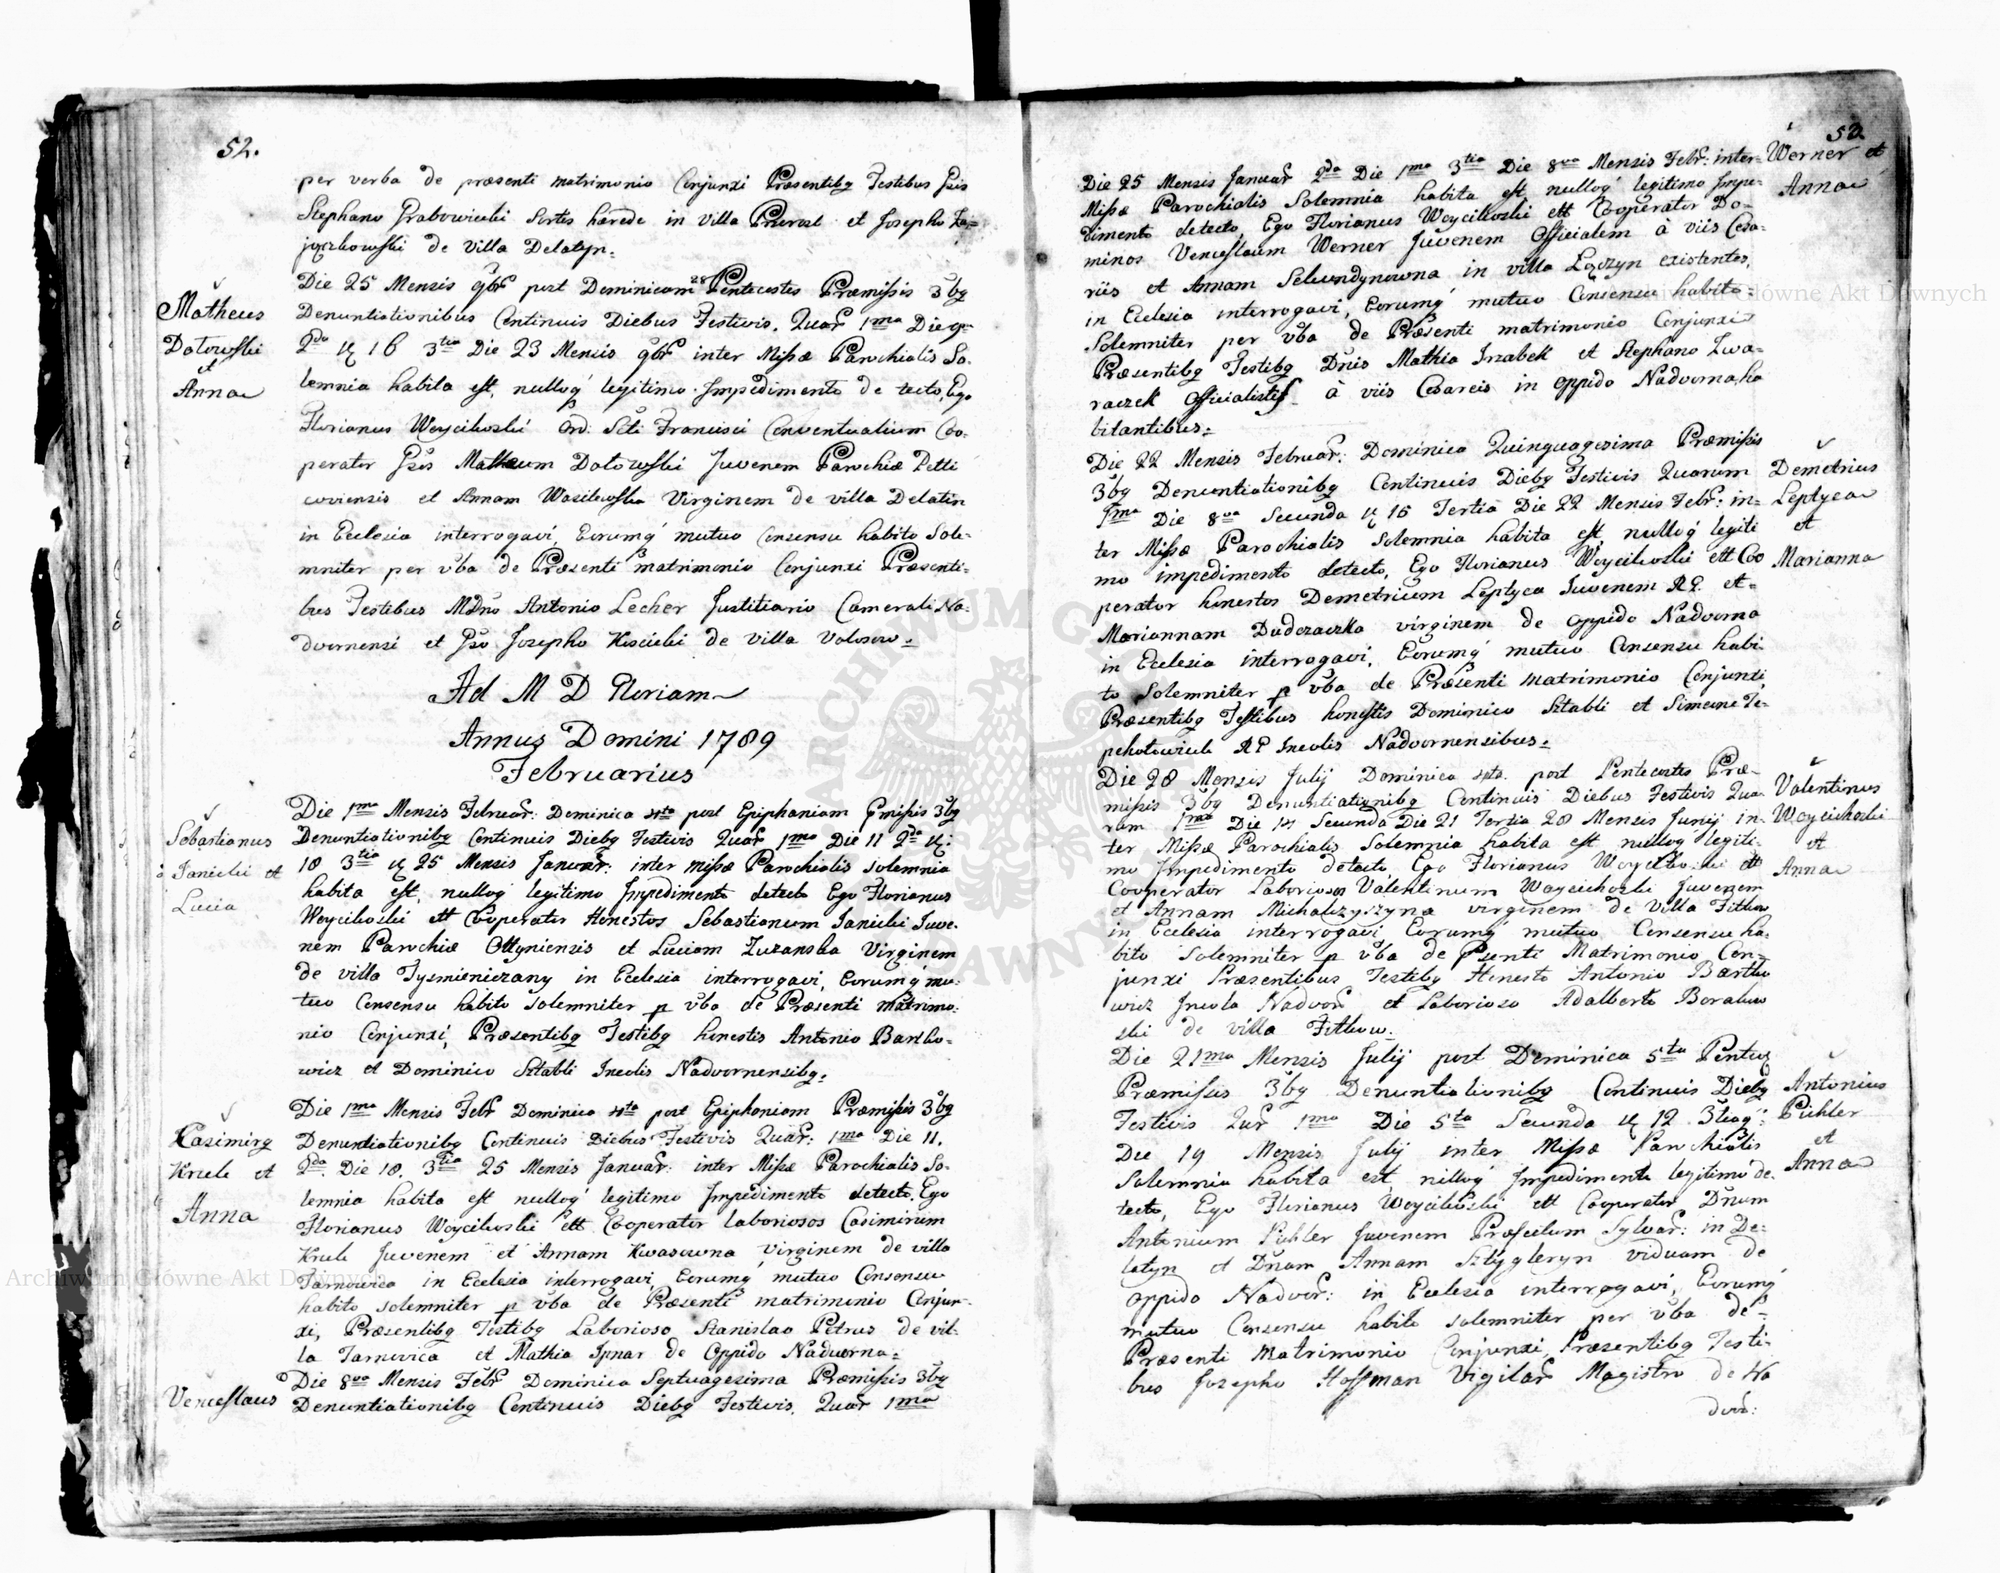 52.
per verba de præsenti matrimonio Conjunxi Præsentibg Testibus
Stephano Grabowiecki Sortis hærede in villa et Josepho
de villa Delatyn.
Matheus
Dotowski
et
Anna
Die 25 Mensis 9br post Dominicam 28 Pentecostes Præmissis 3bg
Denuntiationibus Continuis Diebus Festivis, Quar 1ma Die 9
2da 16 3tia Die 23 Mensis 9br inter Missæ Parochialis So-
lemnia habita est, nulloq legitimo Impedimento detecto, Ego
Florianus Woycikoski Ord: Scti Francisci Conventualium Coo-
perator Matheum Dotowski Juvenem Parochiæ Petli
coviensis et Annam Wasilewska Virginem de villa Delatin
in Ecclesia interrogavi, Eorumq mutuo Consensu habito Sole-
mniter per vba de Præsenti matrimonio Conjunxi Præsenti-
bus Testibus MDno Antonio Lecher Justitiario Camerali Na-
dvornensi et Josepho Kiscielei de villa Volosow.
Ad M D Gloriam
Annus Domini 1789
Februarius
Sebastianus
Janicki et
Lucia
Die 1ma Mensis Februar: Dominica 4ta post Epiphaniam Pmissis 3bg
Denuntiationibg Continuis Diebg Festivis Quar 1ma Die 11 2da
18 3tia 25 Mensis Januar: inter missæ Parochialis solemnia
habita est, nulloq legitimo Impedimento detecto Ego Florianus
Woycikoski Cooperator Honestos Sebastianum Janicki Juve-
nem Parochiæ Ottyniensis et Luciam Zuzanska Virginem
de villa Tysmieniczany in Ecclesia interrogavi, Eorumq mu-
tuo Consensu habito Solemniter p vba de Præsenti matrimo-
nio Conjunxi, Præsentibg Testibg honestis Antonio Bartko-
wicz et Dominico Sztabli Incolis Nadvornensibg.
Casimirg
Krule et
Anna
Die 1ma Mensis Febr Dominica 4ta post Epiphaniam Præmissis 3bg
Denuntiationibg Continuis Diebus Festivis Quar: 1ma Die 11.
2da Die 18. 3tia 25 Mensis Januar: inter Missæ Parochialis So-
lemnia habita est nulloq legitimo Impedimento detecto, Ego
Florianus Woycikoski Cooperator laboriosos Casimirum
Krule Juvenem et Annam Kwasowna Virginem de villa
Tarnowica in Ecclesia interrogavi, Eorumq mutuo Consensu
habito solemniter p vba de Præsenti matrimonio Conjun-
xi, Præsentibg Testibg Laborioso Stanislao Petrus de vil-
la Tarnovica et Mathia Ipnar de Oppido Nadvorna.
Venceslaus
Die 8va Mensis Febr Dominica Septuagesima Præmissis 3bg
Denuntiationibg Continuis Diebg Festivis, Quar 1ma
52
Werner et
Anna
Die 25 Mensis Januar 2da Die 1ma 3tia Die 8va Mensis Febr: inter
Missæ Parochialis Solemnia habita est nulloq legitimo Impe-
dimento detecto, Ego Florianus Woycikoski Cooperator Do-
minos Venceslaum Werner Juvenem Officialem à viis Cesa-
riis et Annam Sekundynowna in villa Lączyn existentes,
in Ecclesia interrogavi, Eorumq mutuo Consensu habito
Solemniter per vba de Præsenti matrimonio Conjunxi
Præsentibg Testibg Dnis Mathia Irzabek et Stephano Zwa-
raczek Officialistis à viis Cesareis in Oppido Nadvorna ha
bitantibus.
Demetrius
Leptyca
et
Marianna
Die 22 Mensis Februar: Dominica Quinquagesima Præmissis
3bg Denuntiationibg Continuis Diebg Festivis Quarum
1ma Die 8va Secunda 15 Tertia Die 22 Mensis Febr: in-
ter Missæ Parochialis Solemnia habita est, nulloq legiti
mo impedimento detecto, Ego Florianus Woycikoski Coo
perator honestos Demetrium Leptyca Juvenem R.G. et
Mariannam Dudczaczka virginem de Oppido Nadvorna
in Ecclesia interrogavi, Eorumq mutuo Consensu habi-
to Solemniter p vba de Præsenti matrimonio Conjunxi,
Præsentibg Testibus honestis Dominico Sztabli et Simeone Te-
Incolis Nadvornensibus.
Valentinus
Woycichoski
et
Anna
Die 28 Mensis Julij Dominica post Pentecostes Præ-
missis 3bg Denuntiationibg Continuis Diebus Festivis Qua-
rum 1ma Die 14 Secunda Die 21 Tertia 28 Mensis Junij in-
ter Missæ Parochialis Solemnia habita est nulloq legiti-
mo Impedimento detecto Ego Florianus Woycikoski
Cooperator Laboriosos Valentinum Woycichoski Juvenem
et Annam Michalczyszyna virginem de villa Fitkow
in Ecclesia interrogavi Eorumq mutuo Consensu ha-
bito Solemniter p vba de Psenti Matrimonio Con-
junxi Præsentibus Testibg Honesto Antonio Bartko
wicz Incola Nadvor et Laborioso Adalberto Boralow
ski de villa Fitkow.
Antonius
Puhler
et
Anna
Die 21ma Mensis Julij post Dominica 5ta Pentec
Præmissis 3bg Denuntiationibg Continuis Diebg
Festivis Quar 1ma Die 5ta Secunda 12 3tiaq:
Die 19 Mensis Julij inter Missæ Parochialis
Solemnia habita est, nulloq Impedimento legitimo de-
tecto, Ego Florianus Woycikoski Cooperator Dnum
Antonium Puhler Juvenem Præfectum Sylvar: in De-
latyn et Dnam Annam Sztygleryn viduam de
Oppido Nadvor: in Ecclesia interrogavi, Eorumq
mutuo Consensu habito solemniter per vba de
Præsenti Matrimonio Conjunxi, Præsentibg Testi-
bus Josepho Hoffman Vigilar Magistro de Na
dvor:
Archiwum Główne Akt Dawnych
Archiwum Główne Akt Dawnych
ARCHIWUM GŁÓWNE AKT DAWNYCH